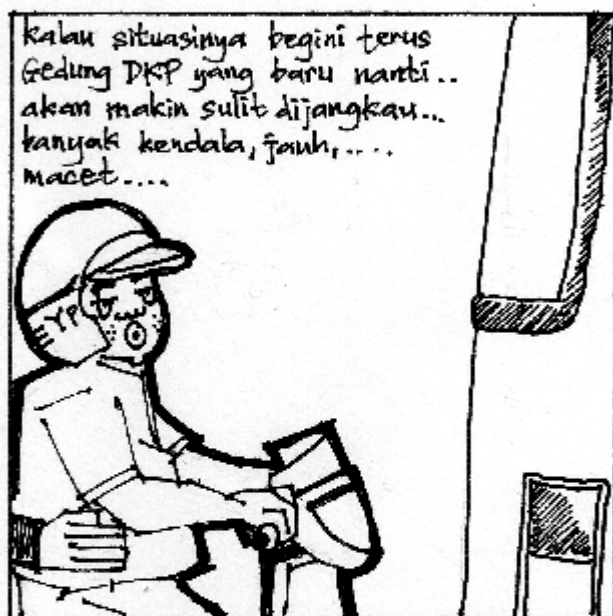 kalau situasinya begini terus
Gedung DKP yang baru nanti..
akan makin sulit dijangkau...
banyak kendala, jauh,....
macet....
YP